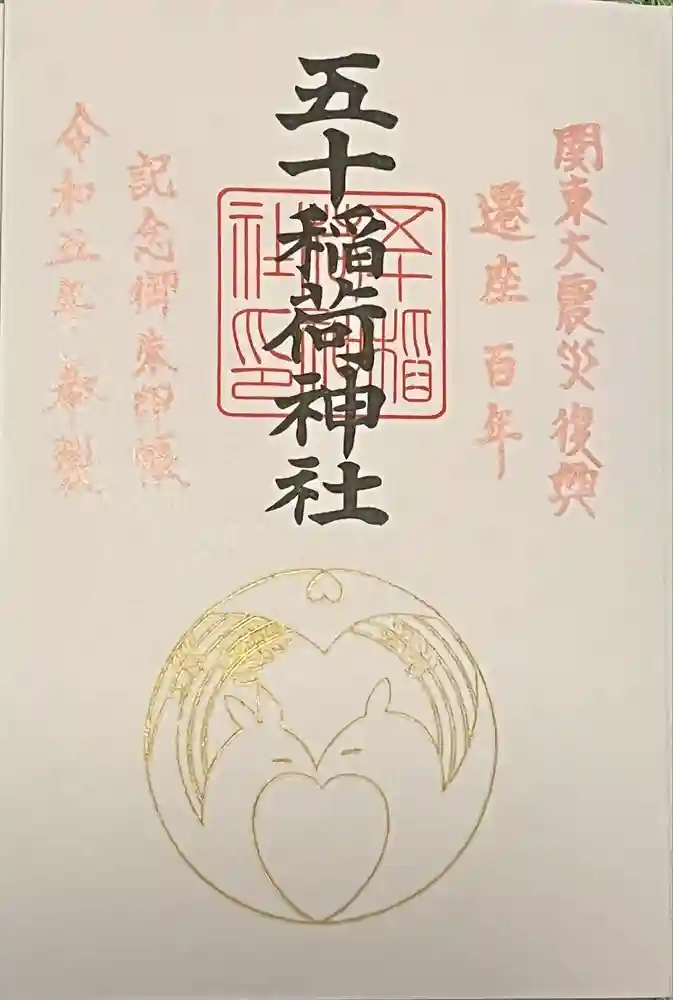 関東大震災復興
遷座 百年
五十稲荷神社
五十稲
荷神
社印
記念御朱印帳
令和五年 奉製